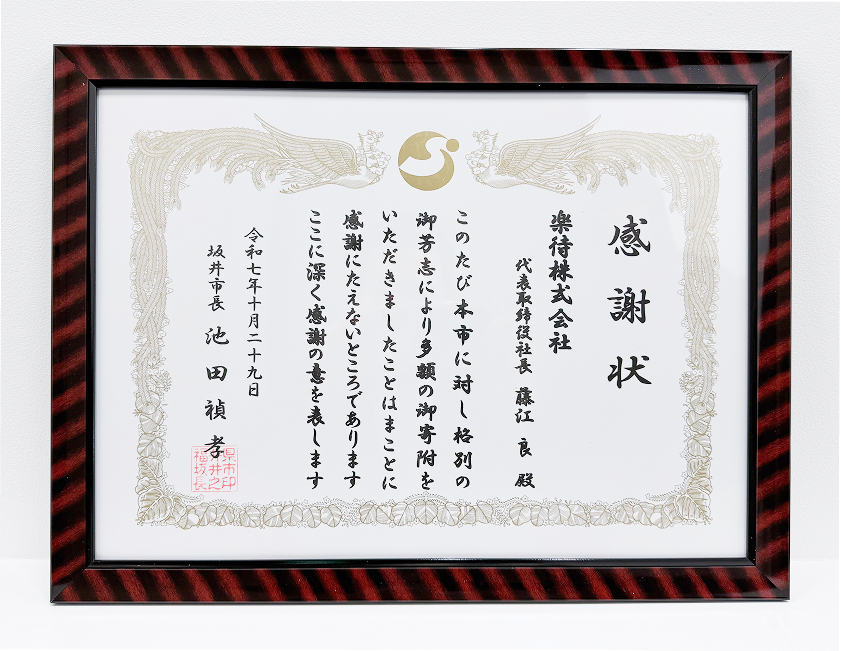 感謝状
楽待株式会社
代表取締役社長 藤江 良 殿
このたび本市に対し格別の
御芳志により多額の御寄附を
いただきましたことはまことに
感謝にたえないところであります
ここに深く感謝の意を表します
令和七年十月二十九日
坂井市長 池田禎孝
県市印
井井之
福坂長